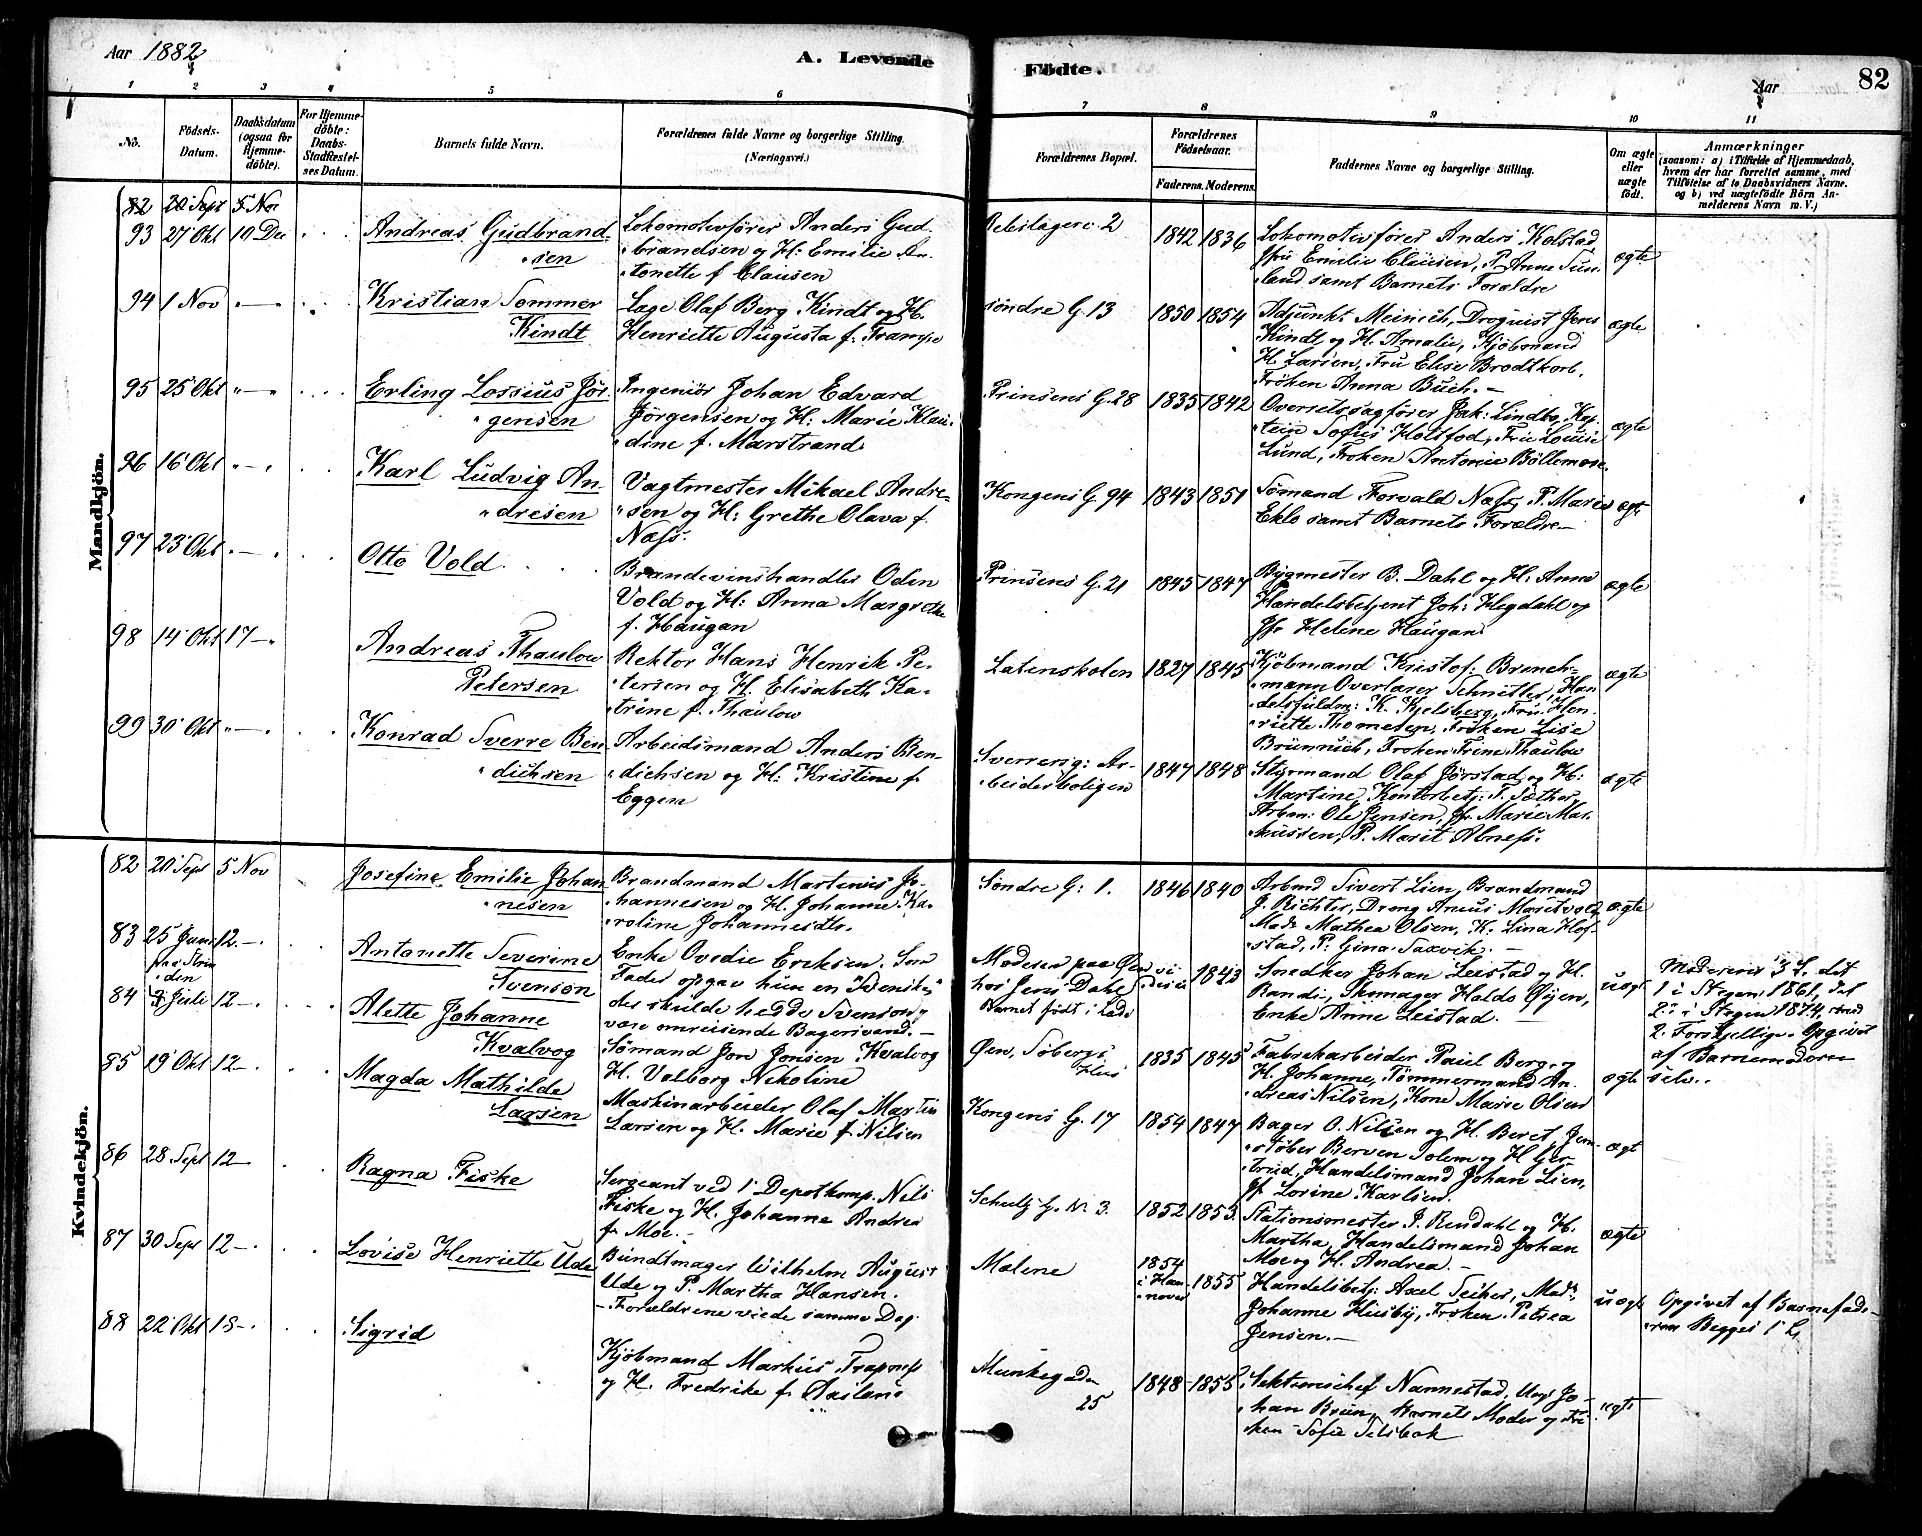 Aar 1882
A. Levende
Födte.
Aar
82
1
2
3
4
5
6
7
8
9
10
11
No.
Födsels-
Datum.
Daabsdatum
(ogsaa for
Hjemme-
döbte).
For Hjemme-
döbte:
Daabs-
Stadfæstel-
ses Datum.
Barnets fulde Navn.
Forældrenes fulde Navne og borgerlige Stilling.
(Næringsvei.)
Forældrenes Bopæl.
Forældrenes
Födselsaar.
Faderens.
Moderens.
Faddernes Navne og borgerlige Stilling.
Om ægte
eller
uægte
födt.
Anmærkninger
(saasom: a) i Tilfælde af Hjemmedaab,
hvem der har forrettet samme, med
Tilföielse af to Daabsvidners Navne.
og b) ved uægtefödte Börn An-
melderens Navn m. V.)
Mandkjön.
82 20 Sept 5 Nov
93 27 Okt 10 De
Andreas Gudbrand-
sen
Lokomotivfører Anders Gud-
brandsen og H: Emilie An-
tonette f. Clausen
2
1842 1836
Lokomotivfører Anders Kolstad
Emilie Clausen, P. Anne Sun-
land samt Barnets Forældre
ægte
94 1 Nov
Kristian Sommer
Kindt
Olaf Berg Kindt og H.
Henriette Augusta f.
Søndre G. 13
1850 1854
Adjunkt Meinich, Droguist Jens
Kindt og H. Amalie, Kjøbmand
H. Larsen, Fru Elise Brodtkorb,
Frøken Anna Buch.
ægte
95 25 Okt
Erling Lossius Jør-
gensen
Ingeniør Johan Edvard
Jørgensen og H: Marie Klau-
dine f. Marstrand
Prinsens G. 28
1835 1842
Overretssagfører Jak: Lindbo, Kap-
tein Sofus Fru Louise
Lund, Frøken Antonie
ægte
96 16 Okt
Karl Ludvig An-
dresen
Vagtmester Mikael Andre-
sen og H: Grethe Olava f.
Næss.
Kongens G. 94
1843 1851
Sømand Torvald Næss, P. Marie
Eklo samt Barnets Forældre
ægte
97 23 Okt
Otto Vold
Brændevinshandler Oden
Vold og H: Anna Margrethe
f. Haugan
Prinsens G. 21
1845 1847
Bygmester B. Dahl og H. Anna
Handelsbetjent Joh: Hegdahl og
Jfr Helene Haugan
ægte
98 14 Okt 17
Andreas Thaulow
Petersen
Rektor Hans Henrik Pe-
tersen og H. Elisabeth Ka-
trine f. Thaulow
Latinskolen
1827 1845
Kjøbmand Kristof. Brench-
mann Overlærer Schnitler, Han-
delsfuldm: K. Kjelsberg, Fru Hen-
riette Thomesen, Frøken Lise
Brünnich, Frøken Trine Thaulow
ægte
99 30 Okt
Konrad Sverre Ben-
dichsen
Arbeidsmand Anders Ben-
dichsen og H: Kristine f.
Eggen
Sverresg: Ar-
beiderboligen
1847 1848
Styrmand Olaf Jørstad og H:
Martine, Kontorbetj: T. Sæther
Arbm: Ole Jensen, Jfr Marie Mar-
kussen, P. Marit
ægte
Kvindekjön.
82 20 Sept 5 Nov
Josefine Emilie Johan-
nesen
Brandmand Martenus Jo-
hannesen og H. Johanne Ka-
roline Johannesdtr.
Søndre G: 1.
1846 1840
Arbmd Sivert Lien, Brandmand
J. Richter, Dreng
Mad: Mathea Olsen, K. Lina Hof-
stad, P: Gina Saxvik.
ægte
83 25 Juni 12
paa Strin-
den
Antonette Severine
Svenson
Enke Ovedie Eriksen. Som
Fader opgav hun en Svensker
der skulde hedde Svenson og
være omreisende Bagersvend.
Moderen paa Øen
hos Jens Dahl
Barnet født i Lade
1843
Snedker Johan Leistad og H.
Randi, Skomager Haldo Øyen,
Enke Anne Leistad.
uægt
Moderens 3 L. det
1 i Stegen 1861, det
2 i Stegen 1874, med
2 Forskjellige. Opgivet
af Barnemoderen
selv.
84 Juli 12
Alette Johanne
Kvalvog
Sømand Jon Jonsen Kvalvog
H. Valborg Nikoline
Øen, Søbergs
Hus
1835 1845
Fabrikarbeider Paul Berg og
H. Johanne, Tømmermand An-
dreas Nilsen, Kone Marie Olsen
ægte
85 19 Okt 12
Magda Mathilde
Larsen
Maskinarbeider Olaf Martin
Larsen og H. Marie f. Nilsen
Kongens G. 17
1854 1847
Bager O. Nilsen og H. Beret, Jern-
støber Berven Solem og H Ger-
trud, Handelsmand Johan Lien,
Jf Lorine Karlsen.
ægt
86 28 Sept 12
Ragna Fiske
Sergeant ved 1' Depotkomp. Nils
Fiske og H. Johanne Andrea
f. Moe.
Schultz G. N 3.
1852 1853
Stationsmester J. Rendahl og H.
Martha, Handelsmand Johan
Moe og H. Andrea.
ægte
87 30 Sept 12
Lovise Henriette Ude
Bundtmager Wilhelm August
Ude og P. Martha Hansen.
Forældrene viede samme Dag
Møllene
1854
i Han-
nover
1855
Handelsbetj: Axel Mad:
Johanne Husby, Frøken Petrea
Jensen.
uægt
Opgivet af Barnefade-
ren Begges 1 L.
88 22 Okt 15
Sigrid
Kjøbmand Markus Trapness
og H. Fredrike f.
Munkegaden
25
1848 1855
Sektionschef Nannestad, Ungk Jo-
han Brun, Barnets Moder og Frø-
ken Sofie Selsbak
ægte